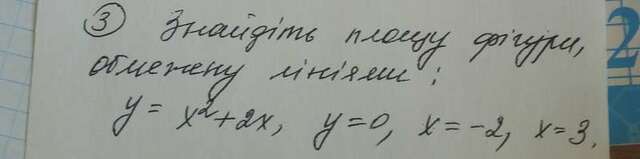 ③ Знайдіть площу фігури,
обмежену лініями:
y = x²+2x, y=0, x=-2, x=3.
2